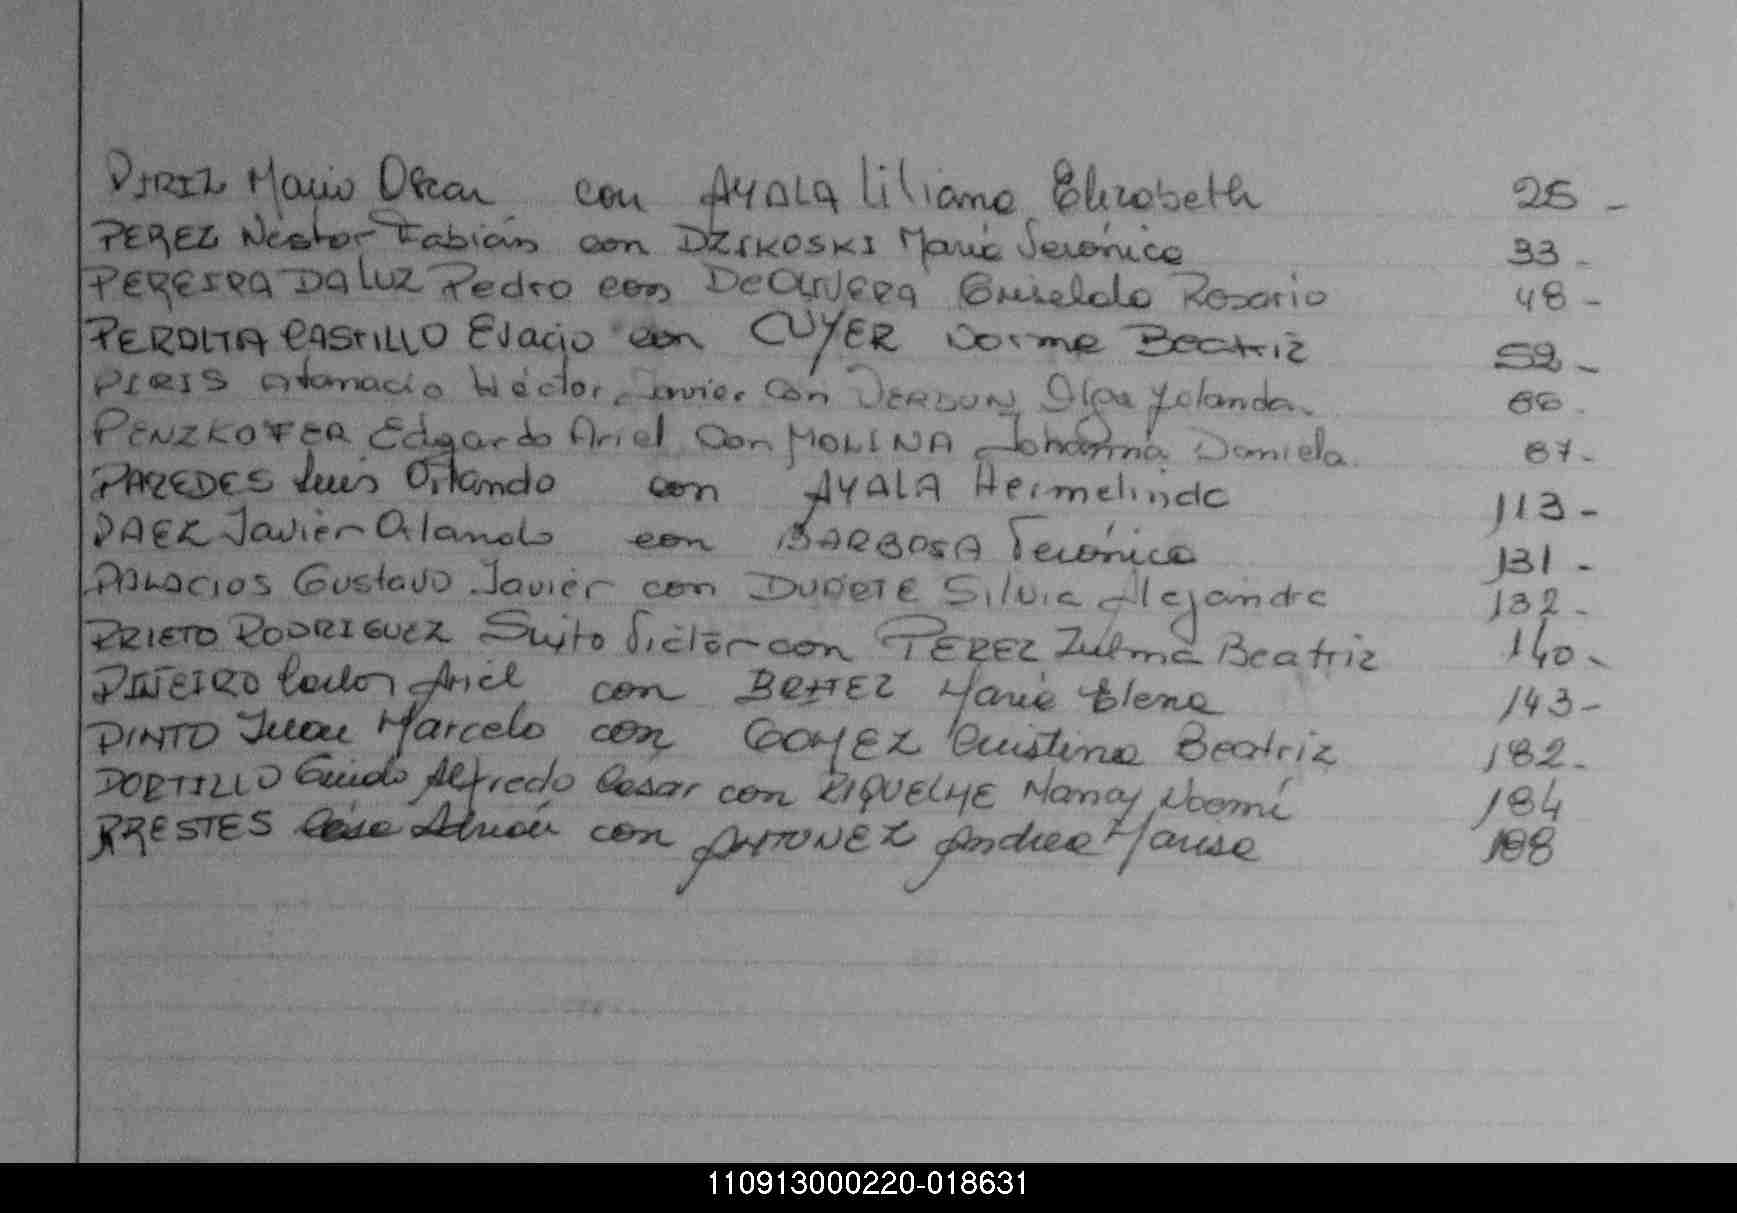 PIRIZ Mario Oscar con AYALA Liliana Elizabeth 25 -
PEREZ Néstor Fabián con DZIKOSKI María Verónica 33 -
PEREIRA DA LUZ Pedro con De OLIVERA Griselda Rosario 48 -
PERALTA CASTILLO Eladio con CUYER Norma Beatriz 52 -
PIRIS Atanacio Héctor Javier con VERDUN Olga Yolanda. 66 -
PENZKOFER Edgardo Ariel con MOLINA Johanna Daniela. 87 -
PAREDES Luis Orlando con AYALA Hermelinda 113 -
PAEZ Javier Orlando con BARBOSA Verónica 131 -
PALACIOS Gustavo Javier con DUARTE Silvia Alejandra 132 -
PRIETO RODRIGUEZ Victor con PEREZ Zulma Beatriz 140 -
PIÑEIRO Carlos Ariel con BRITEZ María Elena 143 -
PINTO Juan Marcelo con GOMEZ Cristina Beatriz 182 -
PORTILLO Guido Alfredo Cesar con RIQUELME Nancy Noemí 184
PRESTES Adrián con ANTUNEZ Andrea Marisa 188
110913000220-018631